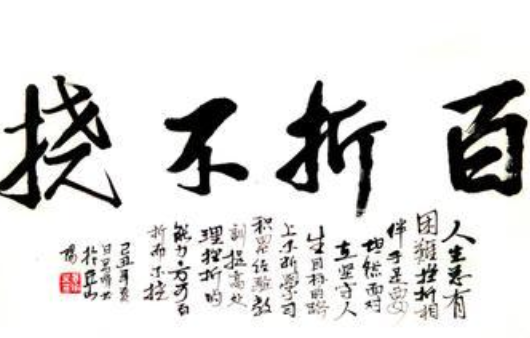 百折不挠
人生总有
困难挫折相
伴于是要
坦然面对
在坚守人
生目标的路
上不断学习
积累经验教
训提高处
理挫折的
能力方可百
折而不挠
己丑年夏